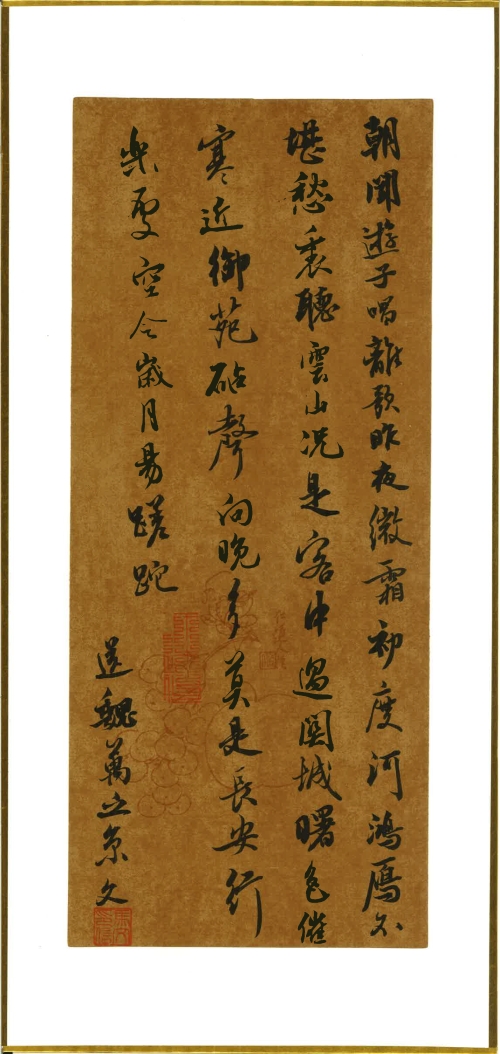 朝聞遊子唱離歌昨夜微霜初度河鴻鴈不
堪愁裏聽雲山况是客中過關城曙色催
寒近御苑砧聲向晚多莫是長安行
樂處空令歲月易蹉跎
送魏萬之京